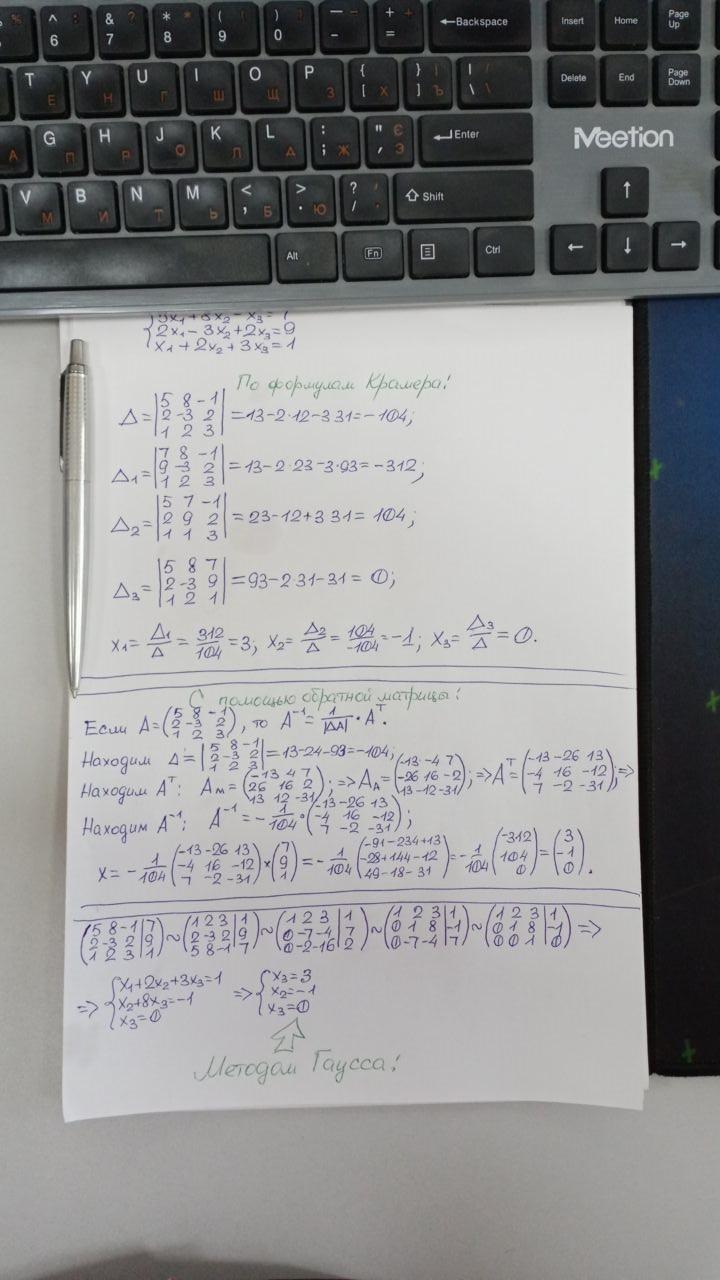 % ^ 6 & ? 7 * 8 ( 9 ) 0 — - + = ←Backspace Insert Home Page Up
T Е Y Н U Г I Ш O Щ P З { [ Х } ] Ъ | \ / \ Delete End Page Down
А G П H Р J О K Л L Д : ; Ж " , Є Э ↵Enter iVeetion
V М B И N Т M Ь < , Б > . Ю ? / ⇧ Shift ↑
Alt Fn Ctrl ← ↓ →
{5x₁+8x₂-x₃=7
2x₁-3x₂+2x₃=9
x₁+2x₂+3x₃=1
По формулам Крамера!
Δ=|5 8 -1; 2 -3 2; 1 2 3|=13-2·12-3 31=-104;
Δ₁=|7 8 -1; 9 -3 2; 1 2 3|=13-2 23-3·93=-312;
Δ₂=|5 7 -1; 2 9 2; 1 1 3|=23-12+3 31=104;
Δ₃=|5 8 7; 2 -3 9; 1 2 1|=93-2·31-31=0;
x₁=Δ₁/Δ=312/104=3; x₂=Δ₂/Δ=104/-104=-1; x₃=Δ₃/Δ=0.
С помощью обратной матрицы!
Если A=(5 8 -1; 2 -3 2; 1 2 3), то A⁻¹=1/|ΔA|·Aᵀ.
Находим Δ=|5 8 -1; 2 -3 2; 1 2 3|=13-24-93=-104;
Находим Aᵀ: Aₘ=(-13 4 7; 26 16 2; 13 12 -31); =>A_A=(-13 -4 7; -26 16 -2; 13 -12 -31); =>Aᵀ=(-13 -26 13; -4 16 -12; 7 -2 -31); =>
Находим A⁻¹: A⁻¹=-1/104·(-13 -26 13; -4 16 -12; 7 -2 -31);
X=-1/104(-13 -26 13; -4 16 -12; 7 -2 -31)×(7; 9; 1)=-1/104(-91-234+13; -28+144-12; 49-18-31)=-1/104(-312; 104; 0)=(3; -1; 0).
(5 8 -1|7; 2 -3 2|9; 1 2 3|1)~(1 2 3|1; 2 -3 2|9; 5 8 -1|7)~(1 2 3|1; 0 -7 -4|7; 0 -2 -16|2)~(1 2 3|1; 0 1 8|-1; 0 -7 -4|7)~(1 2 3|1; 0 1 8|-1; 0 0 1|0)=>
=>{x₁+2x₂+3x₃=1; x₂+8x₃=-1; x₃=0 =>{x₃=3; x₂=-1; x₃=0
Методом Гаусса!